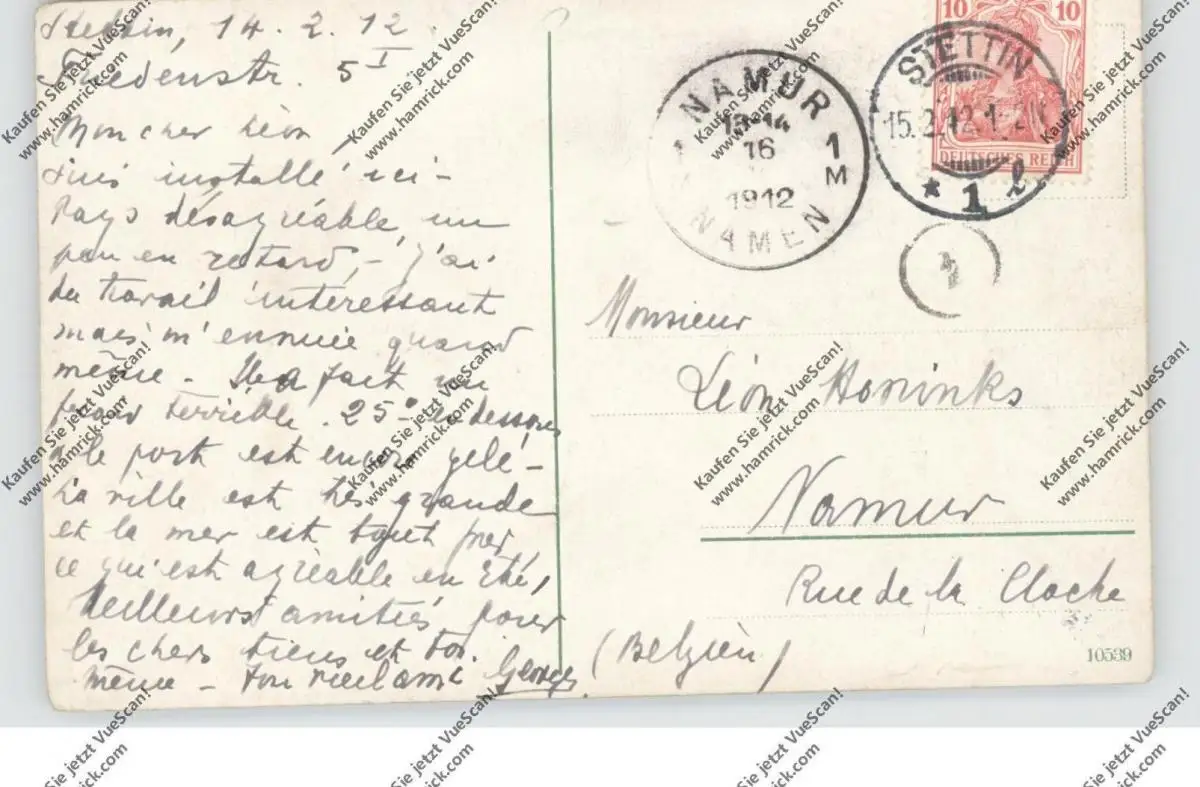 Stettin, 14. 2. 12.
Friedenstr. 5 I
Mon cher Léon
Suis installé ici -
Pays désagréable, un
peu en retard, - j'ai
du travail intéressant
mais m'ennuie quand
même. Il a fait un
froid terrible. 25° en dessous
le port est encore gelé -
La ville est très grande
et la mer est tout près
ce qui est agréable en été,
Meilleures amitiés pour
les chers tiens et toi
même - Ton vieil ami Georges
NAMUR 1
13-14
16
1912
M
NAMEN
10 10
DEUTSCHES REICH
STETTIN
15.2.12.1-2N
* 1 l
Monsieur
Léon
Namur
Rue de la Cloche
(Belgien)
10539
Kaufen Sie jetzt VueScan!
www.hamrick.com